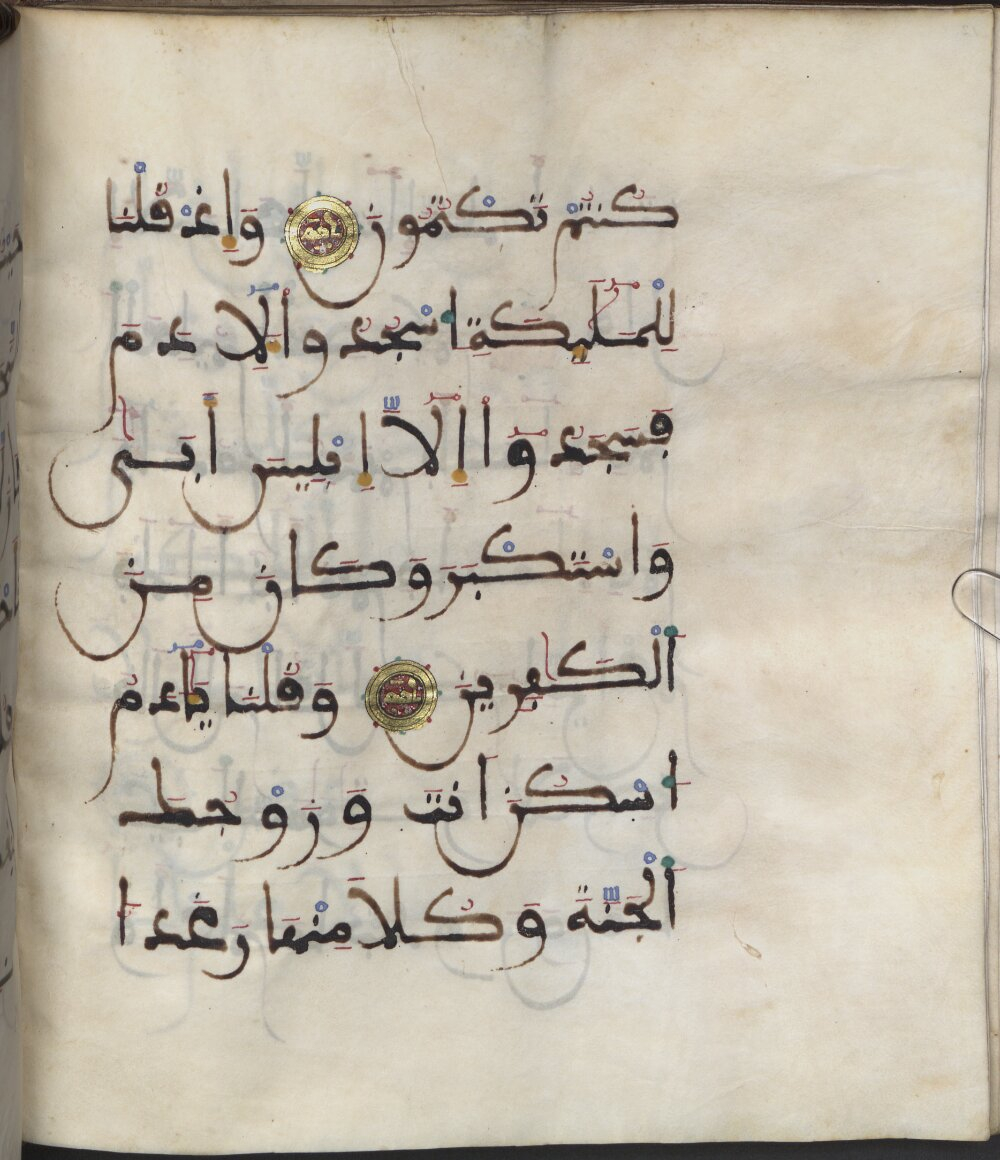 كُنتُمْ تَكْتُمُونَ وَإِذْ قُلْنَا
لِلْمَلَٰئِكَةِ اسْجُدُوا لِأَدَمَ
فَسَجَدُوا إِلَّا إِبْلِيسَ أَبَىٰ
وَاسْتَكْبَرَ وَكَانَ مِنَ
الْكَٰفِرِينَ وَقُلْنَا يَٰـَٔادَمُ
اسْكُنْ أَنتَ وَزَوْجُكَ
الْجَنَّةَ وَكُلَا مِنْهَا رَغَدًا